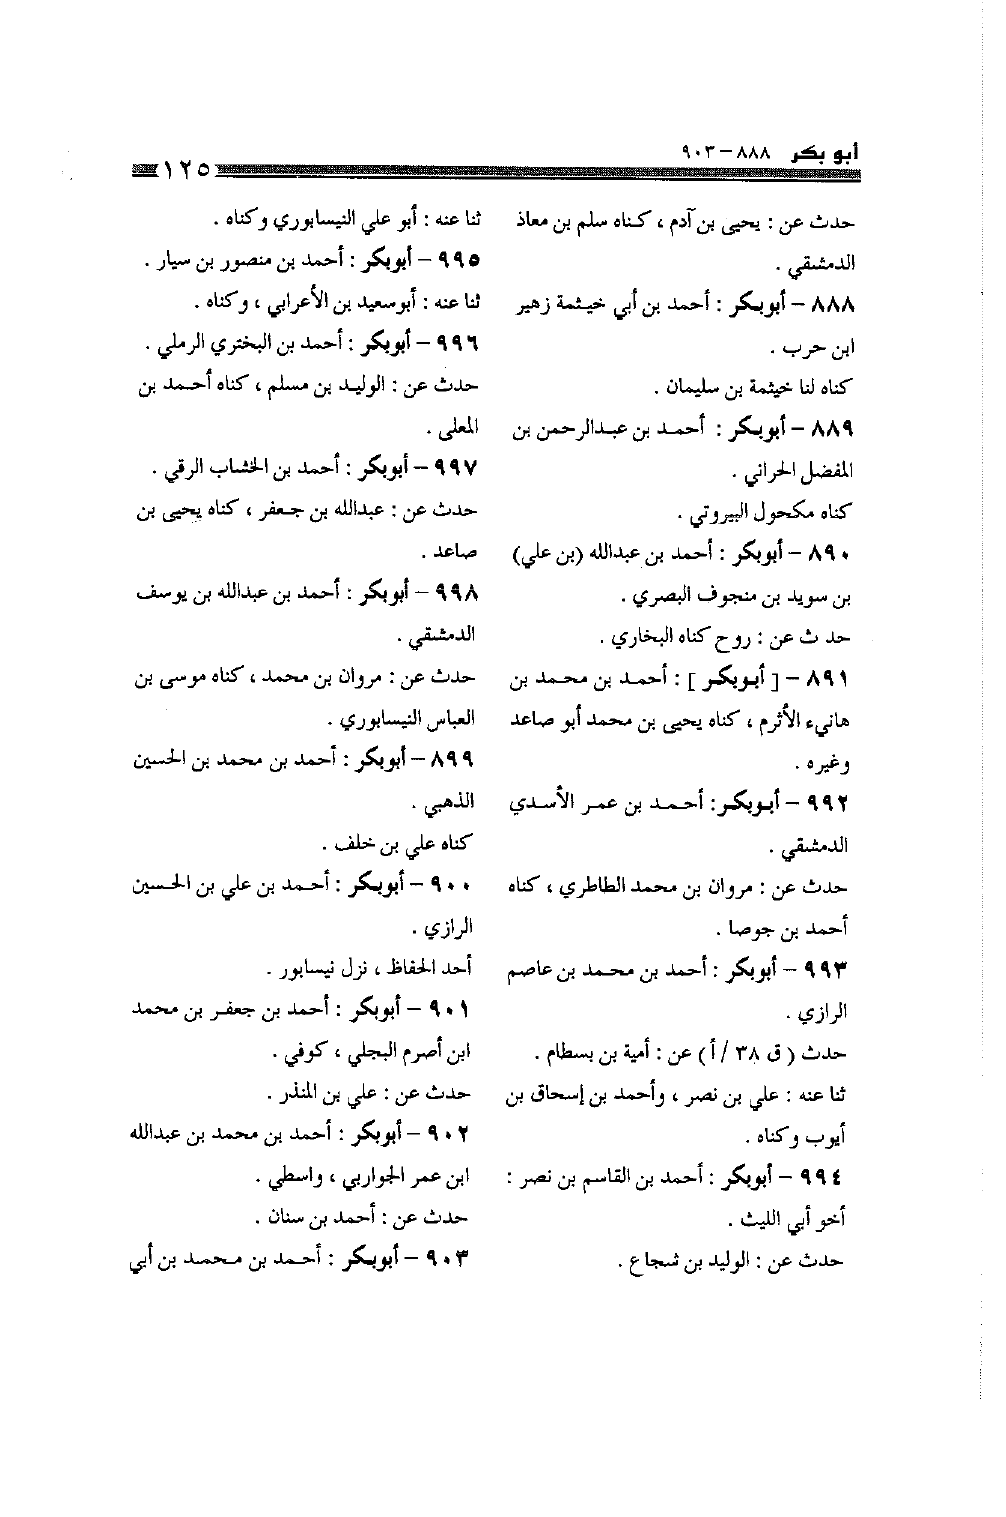 أبو بكر ٨٨٨ – ٩٠٣
١٢٥
حدث عن : يحيى بن آدم ، كناه سلم بن معاذ
الدمشقي .
٨٨٨ – أبوبكر : أحمد بن أبي خيثمة زهير
ابن حرب .
كناه لنا خيثمة بن سليمان .
٨٨٩ – أبوبكر : أحمد بن عبدالرحمن بن
المفضل الحراني .
كناه مكحول البيروتي .
٨٩٠ – أبوبكر : أحمد بن عبدالله (بن علي)
بن سويد بن منجوف البصري .
حد ث عن : روح كناه البخاري .
٨٩١ – [ أبوبكر ] : أحمد بن محمد بن
هانيء الأثرم ، كناه يحيى بن محمد أبو صاعد
وغيره .
٩٩٢ – أبوبكر: أحمد بن عمر الأسدي
الدمشقي .
حدث عن : مروان بن محمد الطاطري ، كناه
أحمد بن جوصا .
٩٩٣ – أبوبكر : أحمد بن محمد بن عاصم
الرازي .
حدث ( ق ٣٨ / أ ) عن : أمية بن بسطام .
ثنا عنه : علي بن نصر ، وأحمد بن إسحاق بن
أيوب وكناه .
٩٩٤ – أبوبكر : أحمد بن القاسم بن نصر :
أخو أبي الليث .
حدث عن : الوليد بن شجاع .
ثنا عنه : أبو علي النيسابوري وكناه .
٩٩٥ – أبوبكر : أحمد بن منصور بن سيار .
ثنا عنه : أبوسعيد بن الأعرابي ، وكناه .
٩٩٦ – أبوبكر : أحمد بن البختري الرملي .
حدث عن : الوليد بن مسلم ، كناه أحمد بن
المعلى .
٩٩٧ – أبوبكر : أحمد بن الخشاب الرقي .
حدث عن : عبدالله بن جعفر ، كناه يحيى بن
صاعد .
٩٩٨ – أبوبكر : أحمد بن عبدالله بن يوسف
الدمشقي .
حدث عن : مروان بن محمد ، كناه موسى بن
العباس النيسابوري .
٨٩٩ – أبوبكر : أحمد بن محمد بن الحسين
الذهبي .
كناه علي بن خلف .
٩٠٠ – أبوبكر : أحمد بن علي بن الحسين
الرازي .
أحد الحفاظ ، نزل نيسابور .
٩٠١ – أبوبكر : أحمد بن جعفر بن محمد
ابن أصرم البجلي ، كوفي .
حدث عن : علي بن المنذر .
٩٠٢ – أبوبكر : أحمد بن محمد بن عبدالله
ابن عمر الجواربي ، واسطي .
حدث عن : أحمد بن سنان .
٩٠٣ – أبوبكر : أحمد بن محمد بن أبي